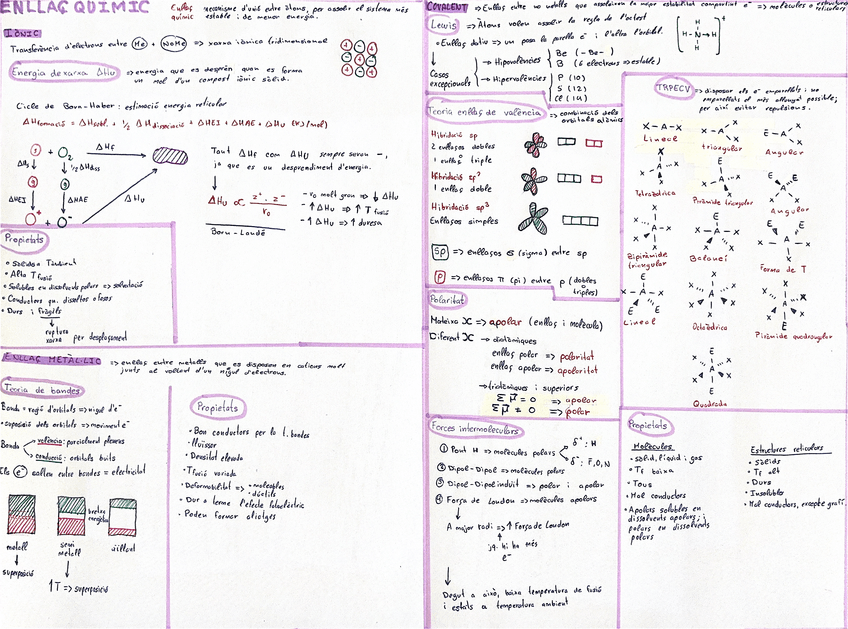 ENLLAÇ QUÍMIC
Enllaç químic => mecanisme d'unió entre àtoms, per assolir el sistema més estable i de menor energia.
IÒNIC
Transferència d'electrons entre Me + NoMe => xarxa iònica tridimensional
Energia de xarxa ΔHu => energia que es desprèn quan es forma
un mol d'un compost iònic sòlid.
Cicle de Born-Haber: estimació energia reticular
ΔHformació = ΔHsubl. + 1/2 ΔHdissociació + ΔHEI + ΔHAE + ΔHu (KJ/mol)
+ O₂
ΔHf
ΔHs
1/2 ΔHdiss
ΔHEI
ΔHAE
ΔHu
O⁺ O⁻
Tant ΔHf com ΔHu sempre seran -,
ja que es un desprendiment d'energia.
ΔHu ∝ z⁺·z⁻ / r₀
Born-Landé
- r₀ molt gran => ↓ ΔHu
- ↑ ΔHu => ↑ T fusió
- ↑ ΔHu => ↑ duresa
Propietats
• Sòlids a Tambient
• Alta Tfusió
• Solubles en dissolvents polars => solvatació
• Conductors qu. dissolts o fosos
• Durs i fràgils
ruptura xarxa per desplaçament
ENLLAÇ METÀL·LIC => enllaç entre metalls que es disposen en cations molt
junts al voltant d'un núvol d'electrons.
Teoria de bandes
Banda = regió d'orbitals => nivell d'e⁻
• superposició dels orbitals => moviment e⁻
Banda
valència: parcialment plenes
conducció: orbitals buits
Els e⁻ salten entre bandes = electricitat
bretxa energètica
metall
semi metall
aïllant
superposició
↑T => superposició
Propietats
• Bon conductors per la t. bandes
• Lluïssor
• Densitat elevada
• Tfusió variada
• Deformabilitat => • maleables
• dúctils
• Dur a terme l'efecte fotoelèctric
• Poden formar aliatges
COVALENT => Enllaç entre no metalls que assoleixen la major estabilitat compartint e⁻ => molècules o estructures reticulars
Lewis => Àtoms volen assolir la regla de l'octet
• Enllaç datiu => un posa la parella e⁻ i l'altre l'orbital.
Casos excepcionals
=> Hipovalències
Be (-Be-)
B (6 electrons => estable)
=> Hipervalències
P (10)
S (12)
Cl (14)
H
H-N->H
H
+
Teoria enllaç de valència => combinació dels
orbitals atòmics
Hibridació sp
2 enllaços dobles
1 enllaç triple
Hibridació sp²
1 enllaç doble
Hibridació sp³
Enllaços simples
sp => enllaços σ (sigma) entre sp
p => enllaços π (pi) entre p (dobles triples)
Polaritat
Mateixa X => apolar (enllaç i molècula)
Diferent X -> diatòmiques
enllaç polar => polaritat
enllaç apolar => apolaritat
-> triatòmiques i superiors
Σ μ = 0 => apolar
Σ μ ≠ 0 => polar
Forces intermoleculars
① Pont H => molècules polars
δ⁺: H
δ⁻: F, O, N
② Dipol-Dipol => molècules polars
③ Dipol-Dipol induït => polar i apolar
④ Força de London => molècules apolars
A major radi => ↑ Força de London
jq. hi ha més
e⁻
Degut a això, baixa temperatura de fusió
i estats a temperatura ambient
TRPECV => disposar els e⁻ emparellats i no
emparellats el més allunyat possible;
per així evitar repulsions.
X-A-X
Lineal
triangular
Angular
Tetraèdrica
Piràmide triangular
Angular
Bipiràmide triangular
Balancí
Forma de T
Lineal
Octaèdrica
Piràmide quadrangular
Quadrada
Propietats
Molècules
• Sòlid, líquid i gas
• Tf baixa
• Tous
• Mal conductors
• Apolars solubles en
dissolvents apolars; i
polars en dissolvents
polars
Estructures reticulars
• Sòlids
• Tf alt
• Durs
• Insolubles
• Mal conductors, excepte grafit.